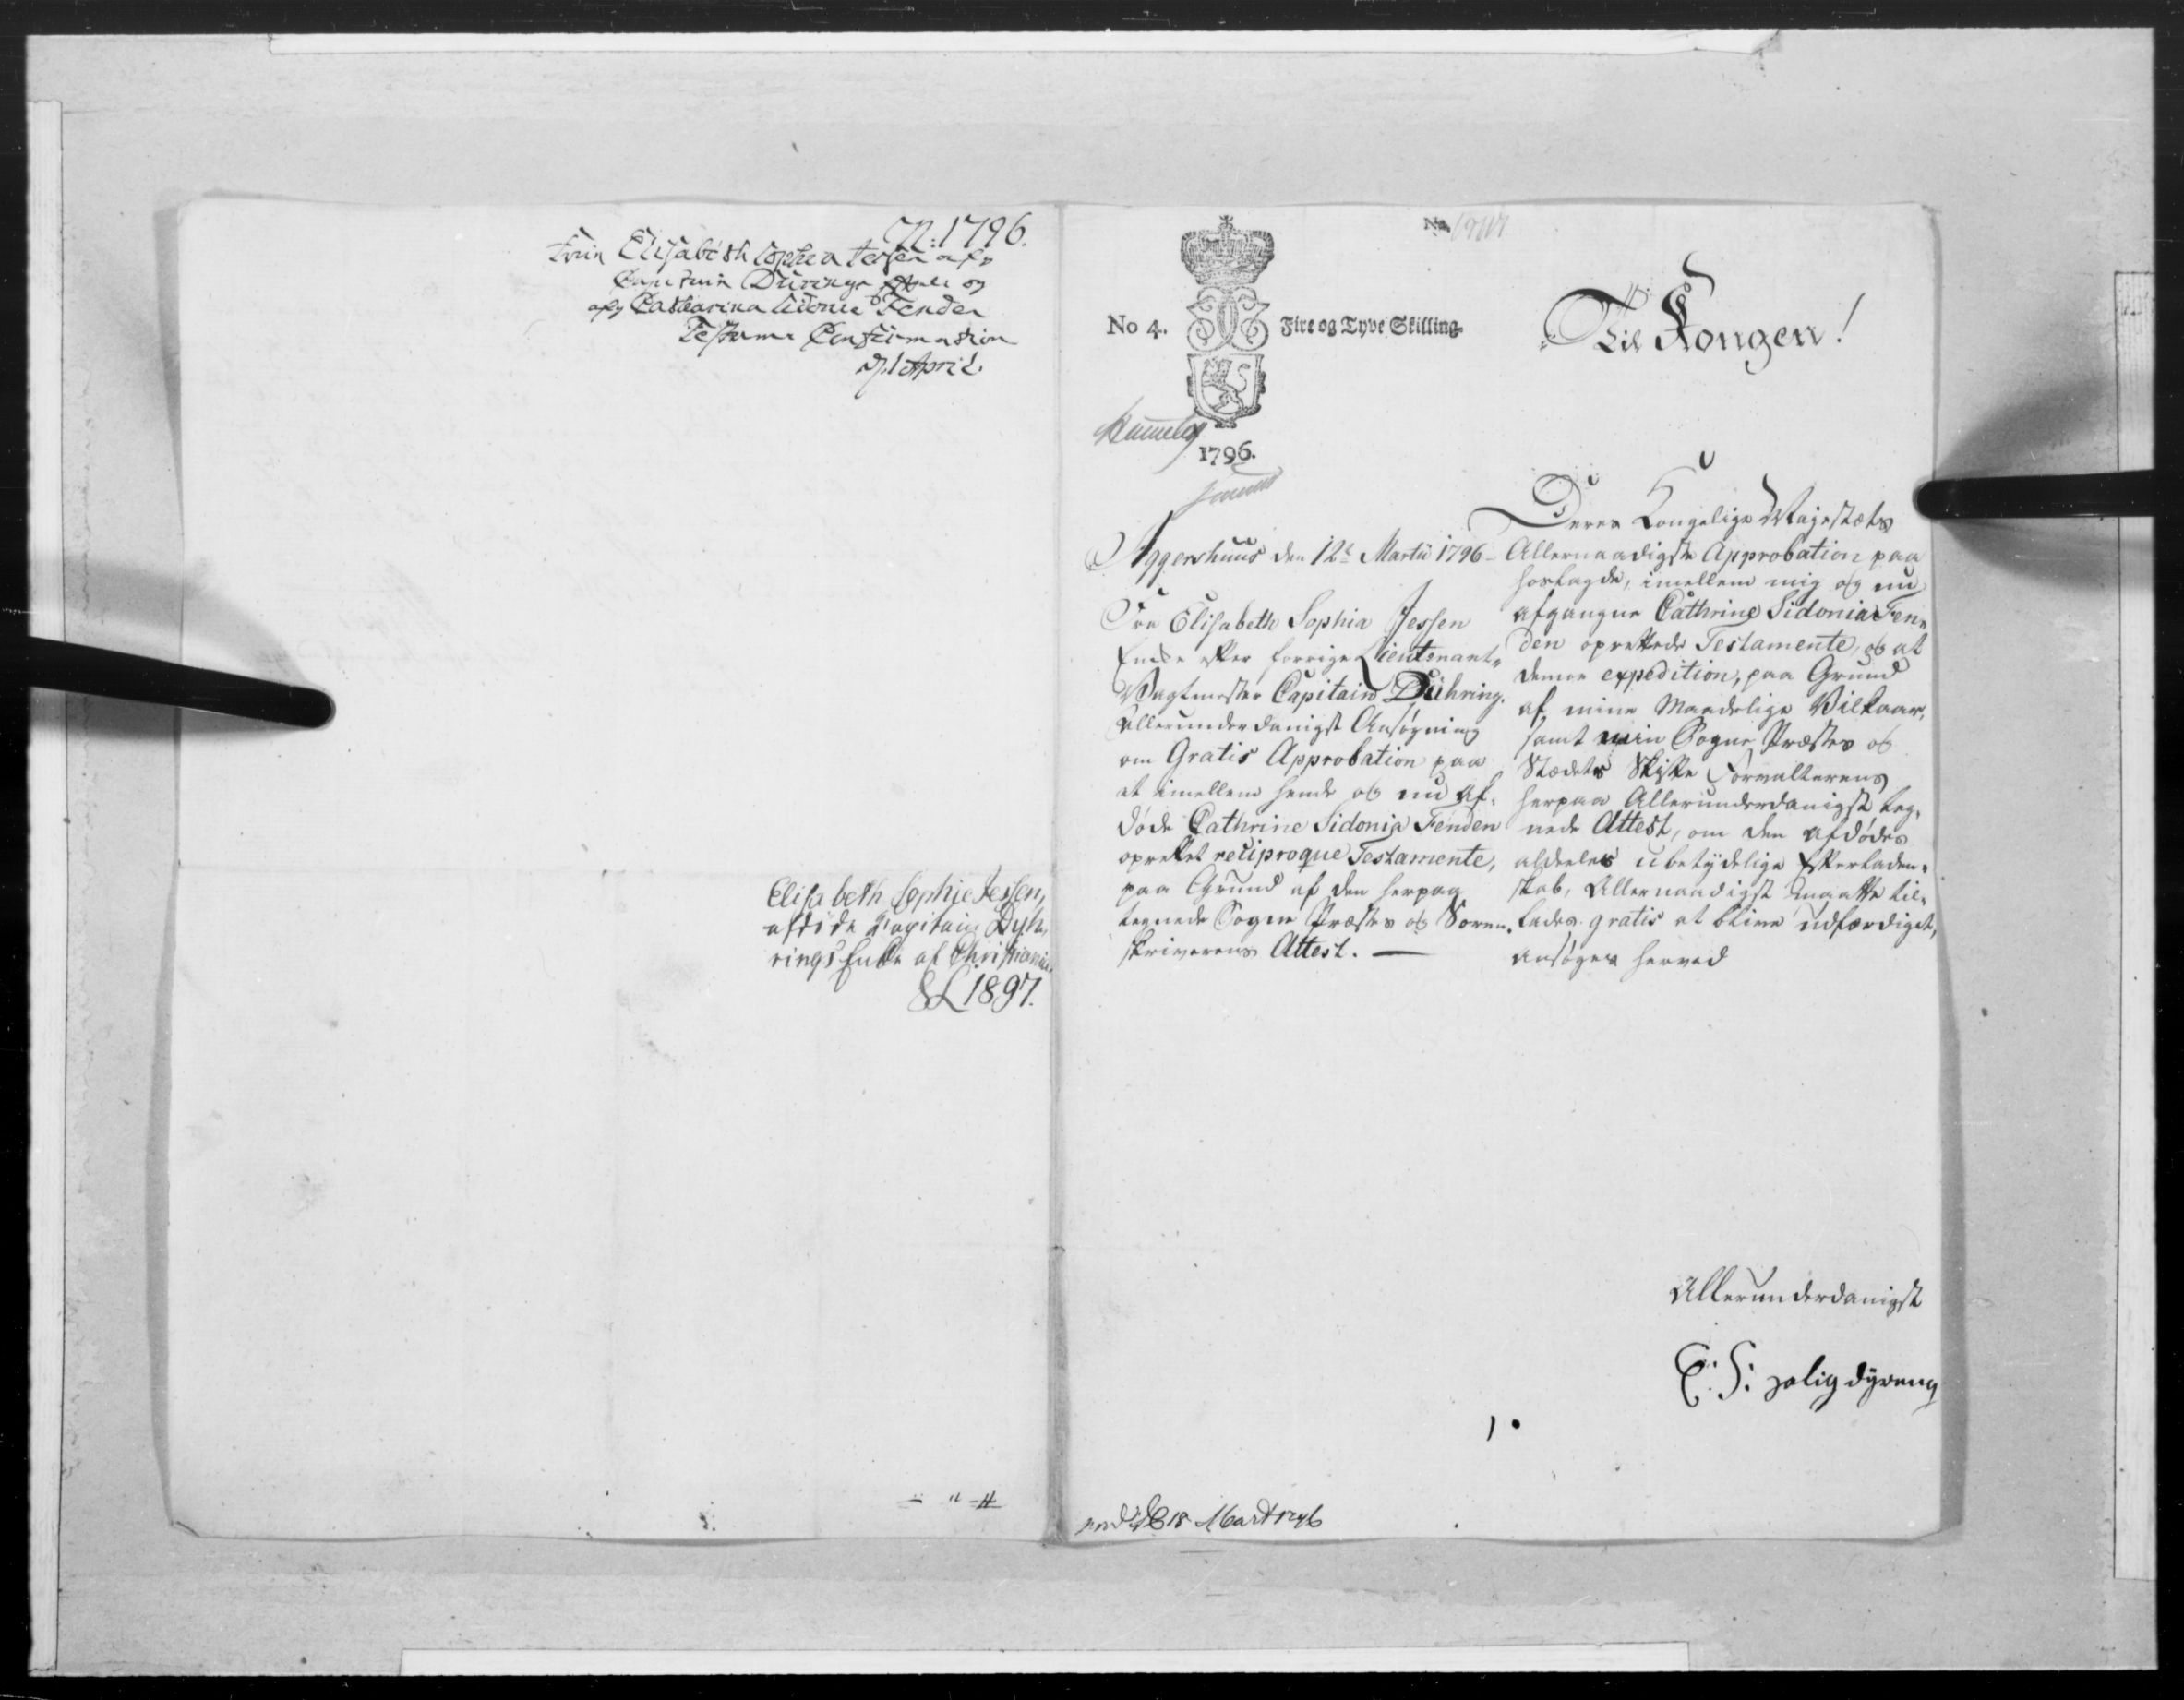 N: 1796.
Frue Elisabeth Sophia Jessen afg
Capitain Dürings Enke og
afg Catharina Sidonia Fenden
Testam: Confirmation
d. 1 April.
Elisabeth Sophie Jessen,
afdøde Capitain Dyh„
rings Enke af Christiania.
SL 1897.
No 4.
Fire og Tyve Skilling
1796.
No
Til Kongen!
Aggershuus den 12te Martii 1796
Fru Elisabeth Sophia Jessen
Encke efter forrige Lieutenant„
Vagtmester Capitain Dühring.
Allerunderdanigst Ansøgning
om Gratis Approbation paa
et imellem hende og nu af„
døde Cathrine Sidonia Fenden
oprettet reciproque Testamente,
paa Grund af den herpaa
tegnede Sogne Præstes og Soren„
skriverens Attest. —
Deres Kongelige Majestæts
Allernaadigste Approbation paa
hoslagde, imellem mig og nu
afgangne Cathrine Sidonia Fen„
den oprettede Testamente, og at
denne expedition, paa Grund
af mine Maadelige Vilkaar,
samt min Sogne Præstes og
Stædets Skifte Forvalterens
herpaa Allerunderdanigst teg„
nede Attest, om den afdødes
aldeeles ubetydelige Efterladen„
skab, Allernaadigst maatte til„
lades gratis at blive udfærdiget,
ansøges herved
Allerunderdanigst
E: S: salig dyreng
18 Mart 1796